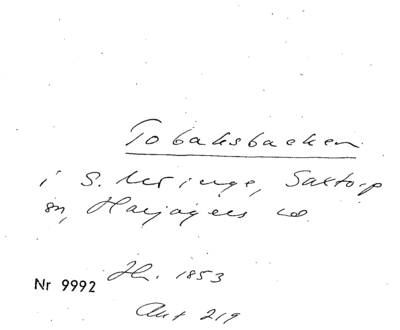 Tobaksbacken
i S. Möinge, Saxtorp
sn, Harjagers hd.
Hn. 1853
Nr 9992
Akt 219